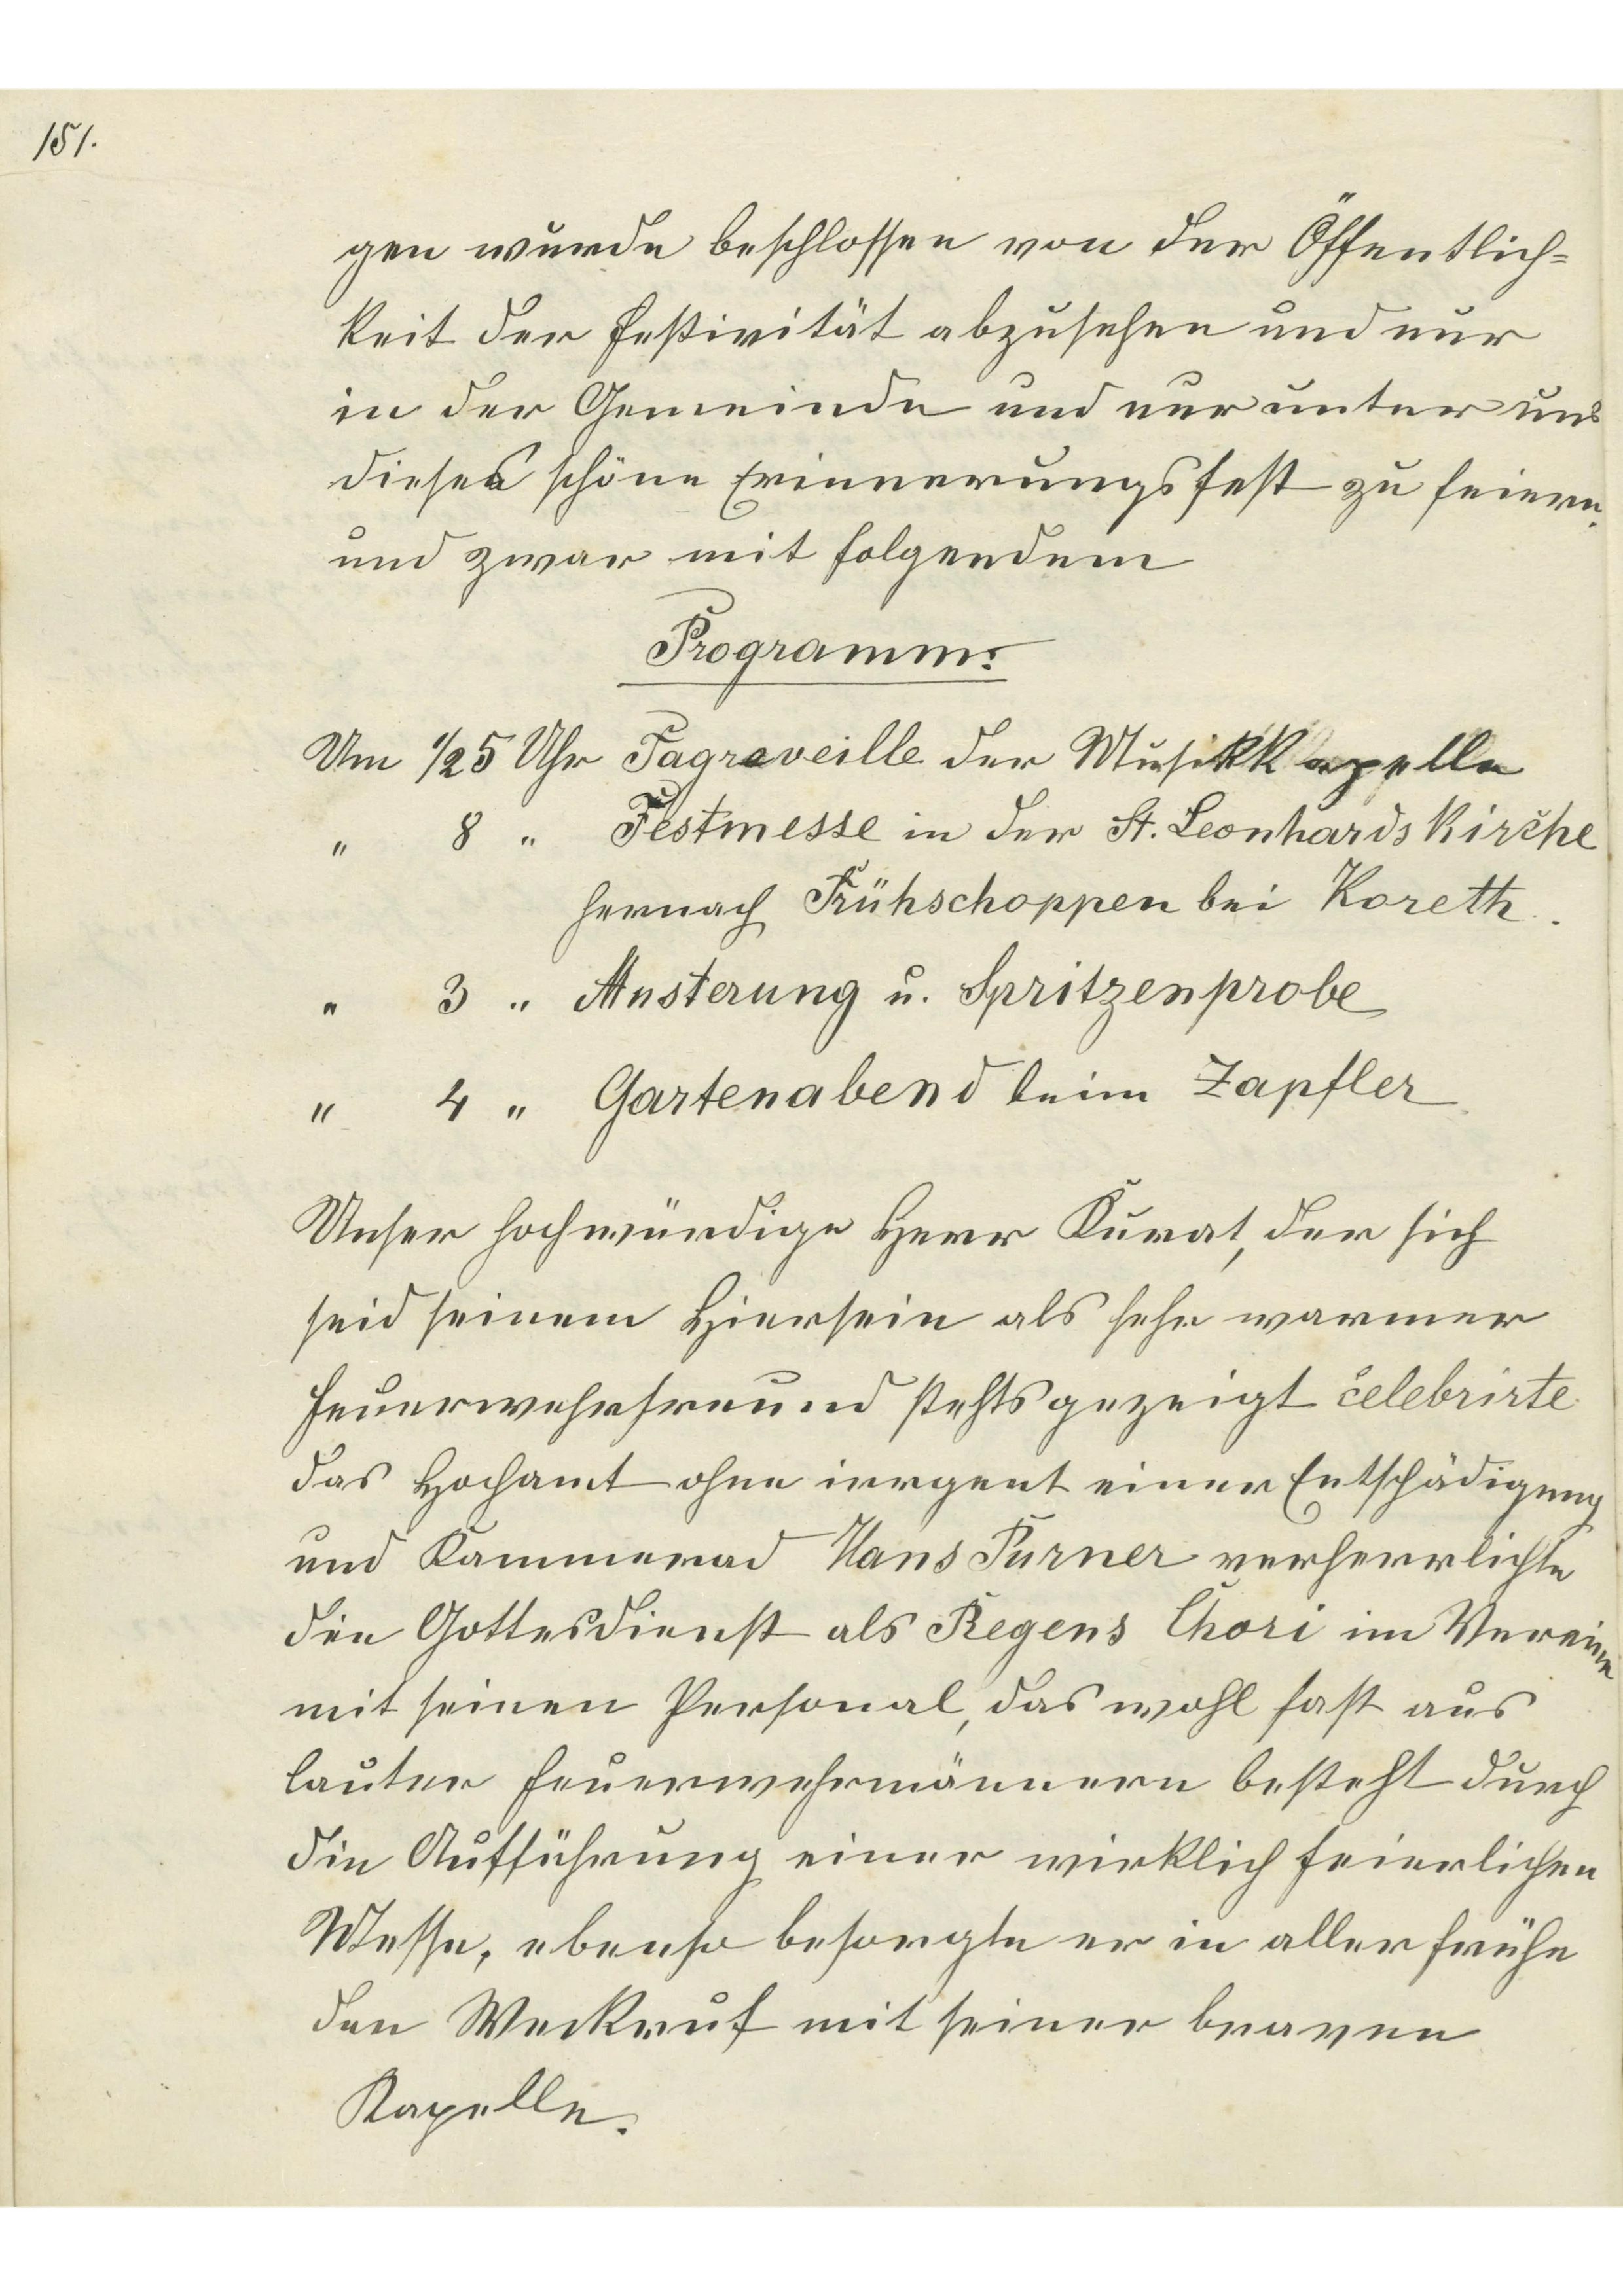 151.
gen wurde beschlossen von der Öffentlich=
keit der Festivität abzusehen und nur
in der Gemeinde und nur unter uns
dieses schöne Erinnerungsfest zu feiern.
und zwar mit folgendem
Programm:
Um 1/25 Uhr Tagreveille der Musikkapelle
" 8 " Festmesse in der St. Leonhardskirche
hernach Frühschoppen bei Koreth.
" 3 " Musterung u. Spritzenprobe
" 4 " Gartenabend beim Zapfler
Unser hochwürdige Herr Kurat, der sich
seid seinem Hiersein als sehr warmer
Feuerwehrfreund stehts gezeigt celebrirte
das Hochamt ohne irrgent einer Entschädigung
und Kammerad Hans Purner verherrlichte
die Gottesdienst als Regens Chori im Vereine
mit seinen Personal, das wohl fast aus
lauter Feuerwehrmännern besteht durch
die Aufführung einer wirklich feierlichen
Messe, ebenso besorgte er in aller frühe
den Weckruf mit seiner braven
Kapelle.